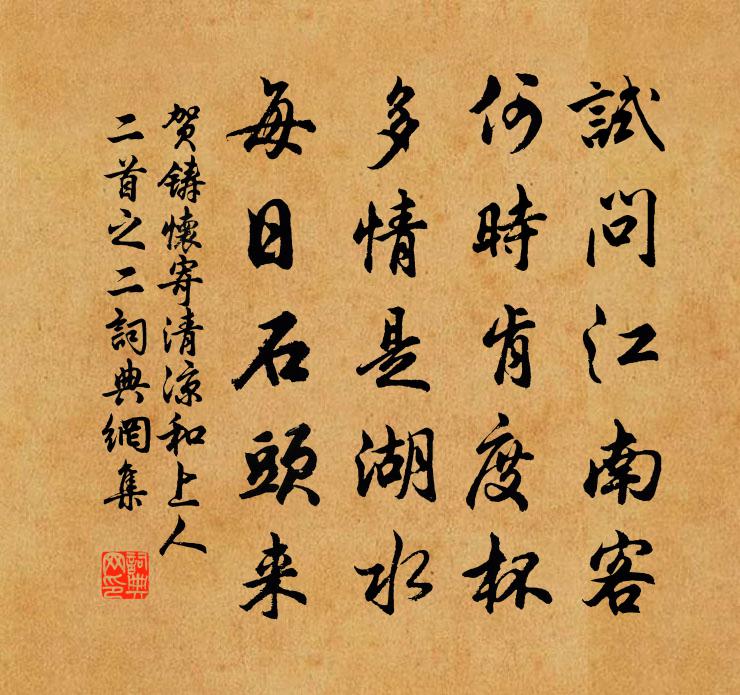 試問江南客
何時肯度杯
多情是湖水
每日石頭来
賀鑄懷寄清涼和上人
二首之二詞典網集
詞典
网印